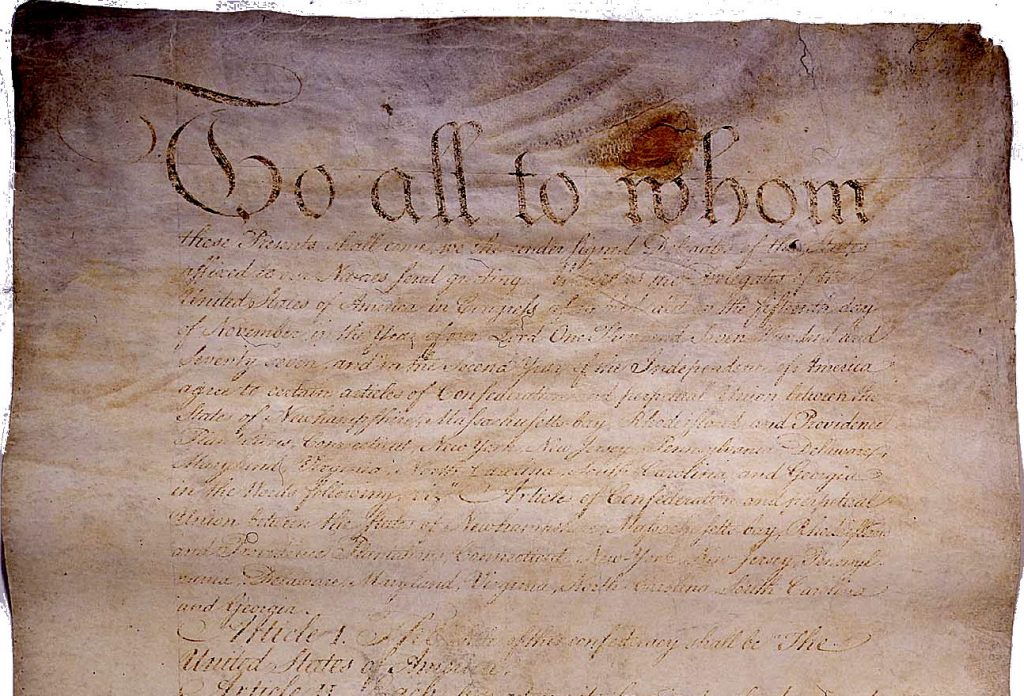 To all to whom
these Presents shall come, we the under signed Delegates of the States
affixed to our Names send greeting. Whereas the Delegates of the
United States of America in Congress assembled did on the fifteenth day
of November in the Year of our Lord One Thousand Seven Hundred and
Seventy seven, and in the Second Year of the Independence of America
agree to certain articles of Confederation and perpetual Union between the
States of Newhampshire, Massachusetts-bay, Rhodeisland and Providence
Plantations, Connecticut, New York, New Jersey, Pennsylvania, Delaware,
Maryland, Virginia, North-Carolina, South-Carolina, and Georgia
in the Words following, viz. "Articles of Confederation and perpetual
Union between the States of Newhampshire, Massachusetts-bay, Rhodeisland
and Providence Plantations, Connecticut, New-York, New-Jersey, Pennsyl-
vania, Delaware, Maryland, Virginia, North-Carolina, South-Carolina
and Georgia.
Article I. The Stile of this confederacy shall be "The
United States of America."
Article II. Each